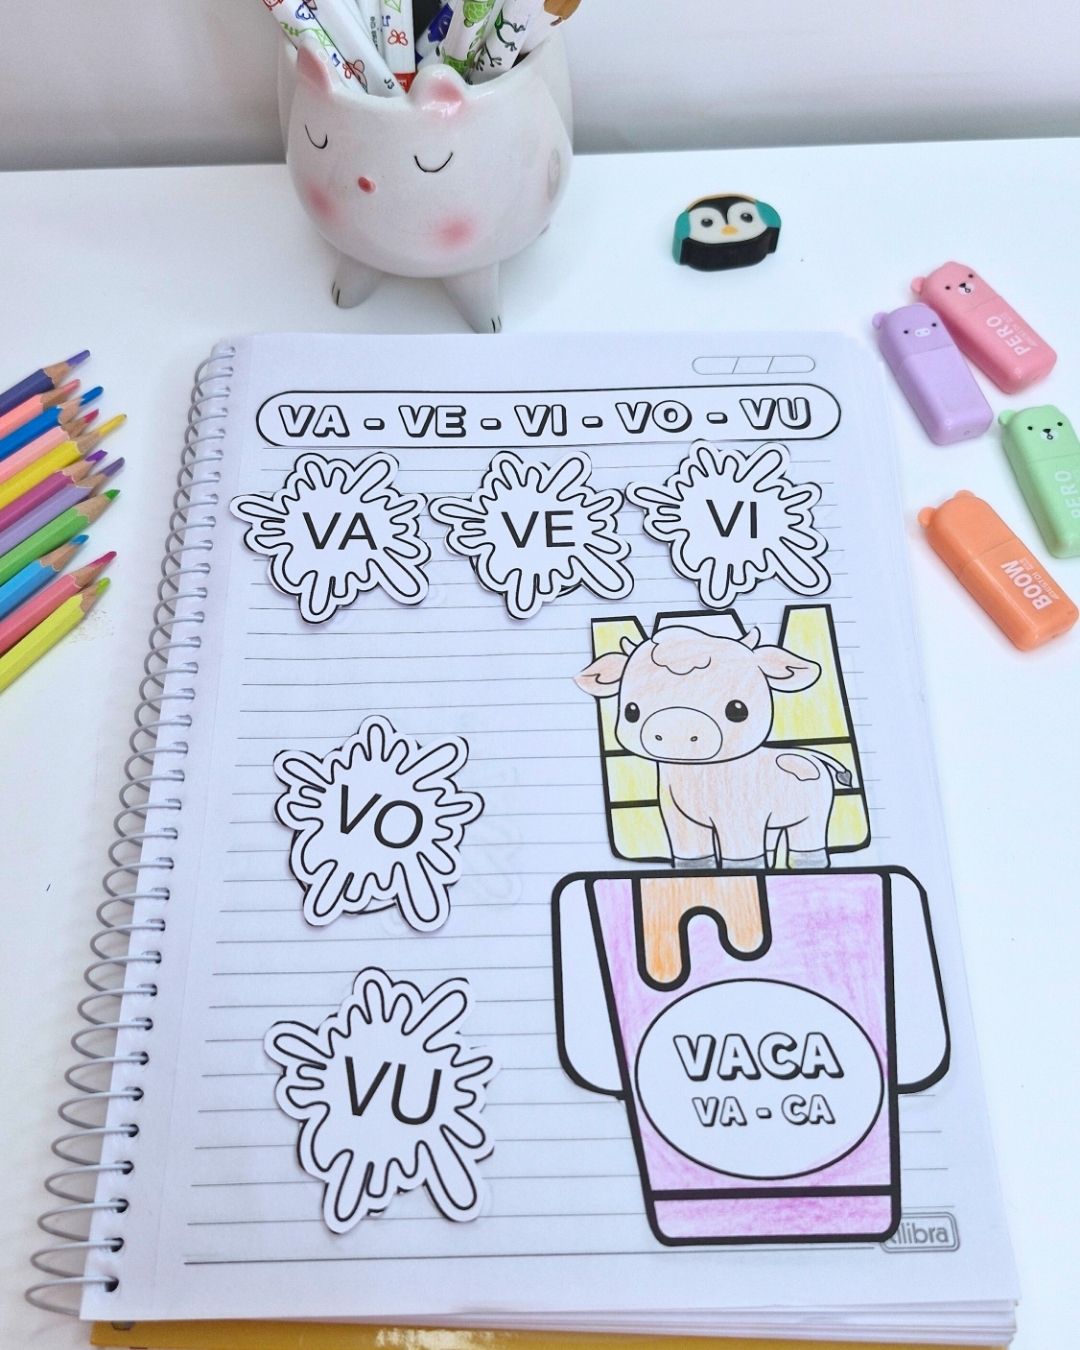 VA - VE - VI - VO - VU
VA
VE
VI
VO
VU
VACA
VA - CA
PERO
PERO
BOOW